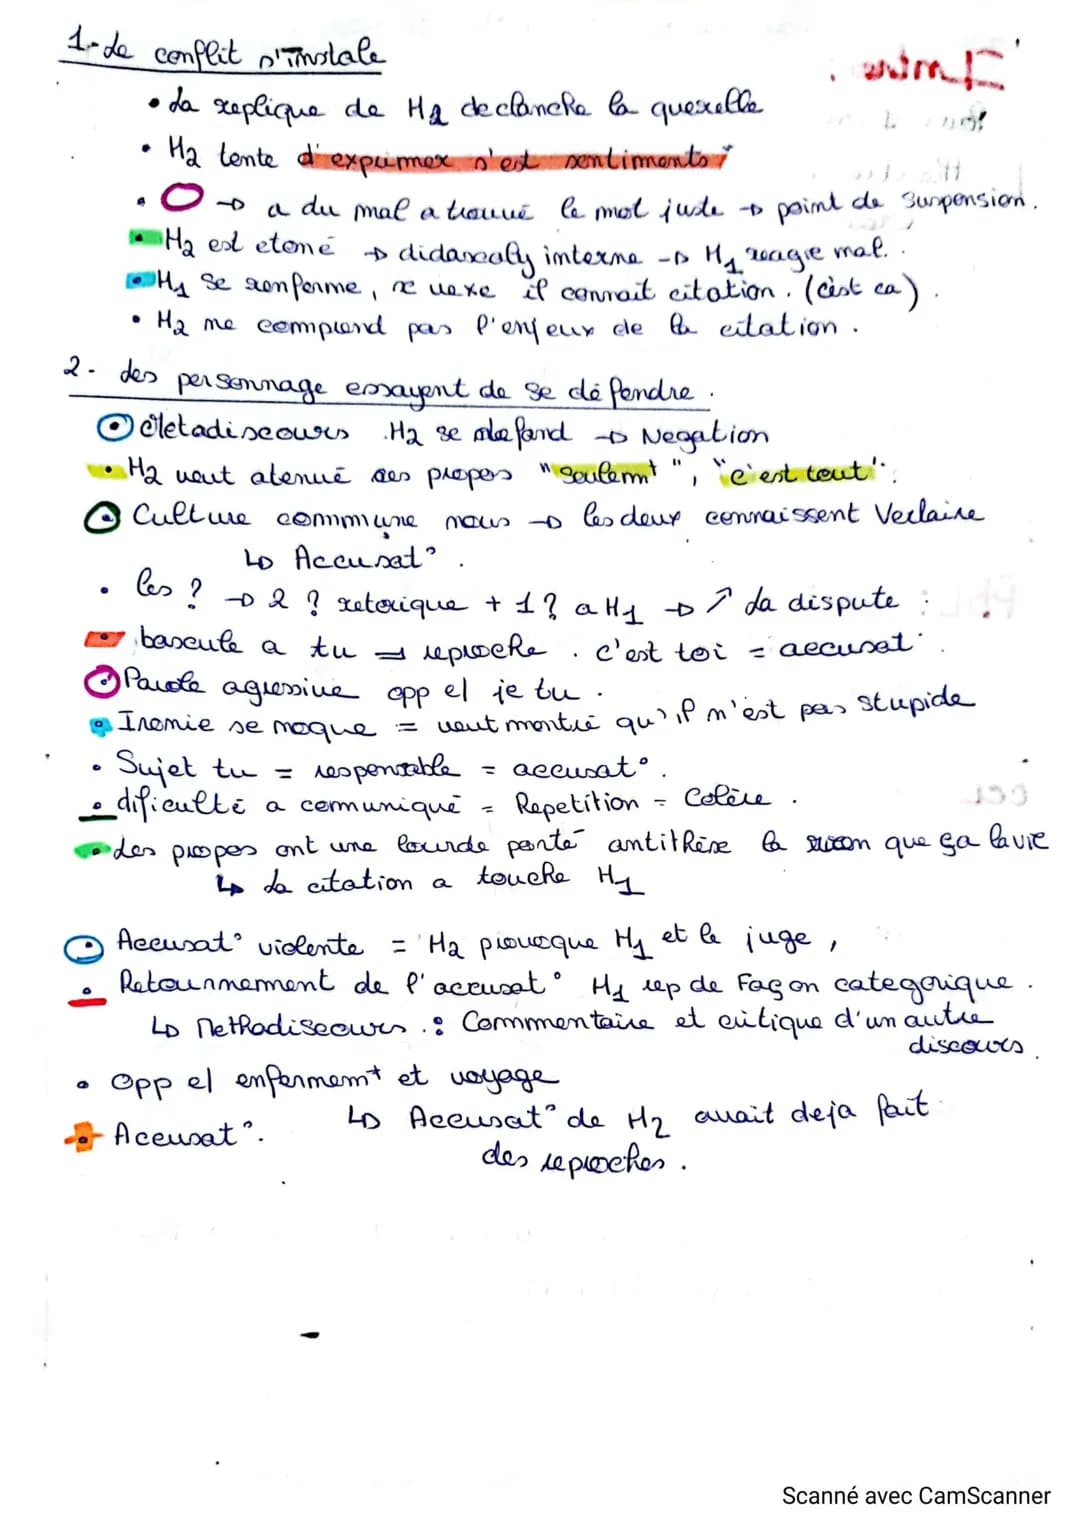 1- Le conflit s'instale
• La replique de H2 declanche la querelle
• H2 tente d'exprimer s'est sentiments
• → a du mal a trouvé le mot juste → point de suspension.
• H2 est etoné → didascaly interne → H1 reagie mal.
• H1 se renferme, se vexe il connait citation. (c'est ca).
• H2 ne comprend pas l'enjeux de la citation.
2- des personnage essayent de se défendre.
• Metadiscours. H2 se defand → Negation
• H2 veut atenué ses propos "seulemt", "c'est tout".
• Culture commune nous → les deux connaissent Verlaine
↳ Accusat°.
• les ? → 2 ? retorique + 1 ? a H1 → ↗ La dispute
• bascule a tu = reproche. c'est toi = accusat°.
• Parole agressive opp el je tu.
• Ironie se moque = veut montré qu'il n'est pas stupide
• Sujet tu = responsable = accusat°.
• dificulté a comuniqué = Repetition = Colère.
• Les propos ont une lourde porté antithèse la que ça la vie
↳ La citation a touche H1
• Accusat° violente = H2 provoque H1 et le juge,
• Retournnement de l'accusat° H1 rep de Façon categorique.
↳ Methadiscours : Commmentaire et critique d'un autre
discours.
• Opp el enfermemt et voyage
↳ Accusat° de H2 avait deja fait
• Accusat°.
des reproches.
Intro :
PBL :
CCL
Scanné avec CamScanner